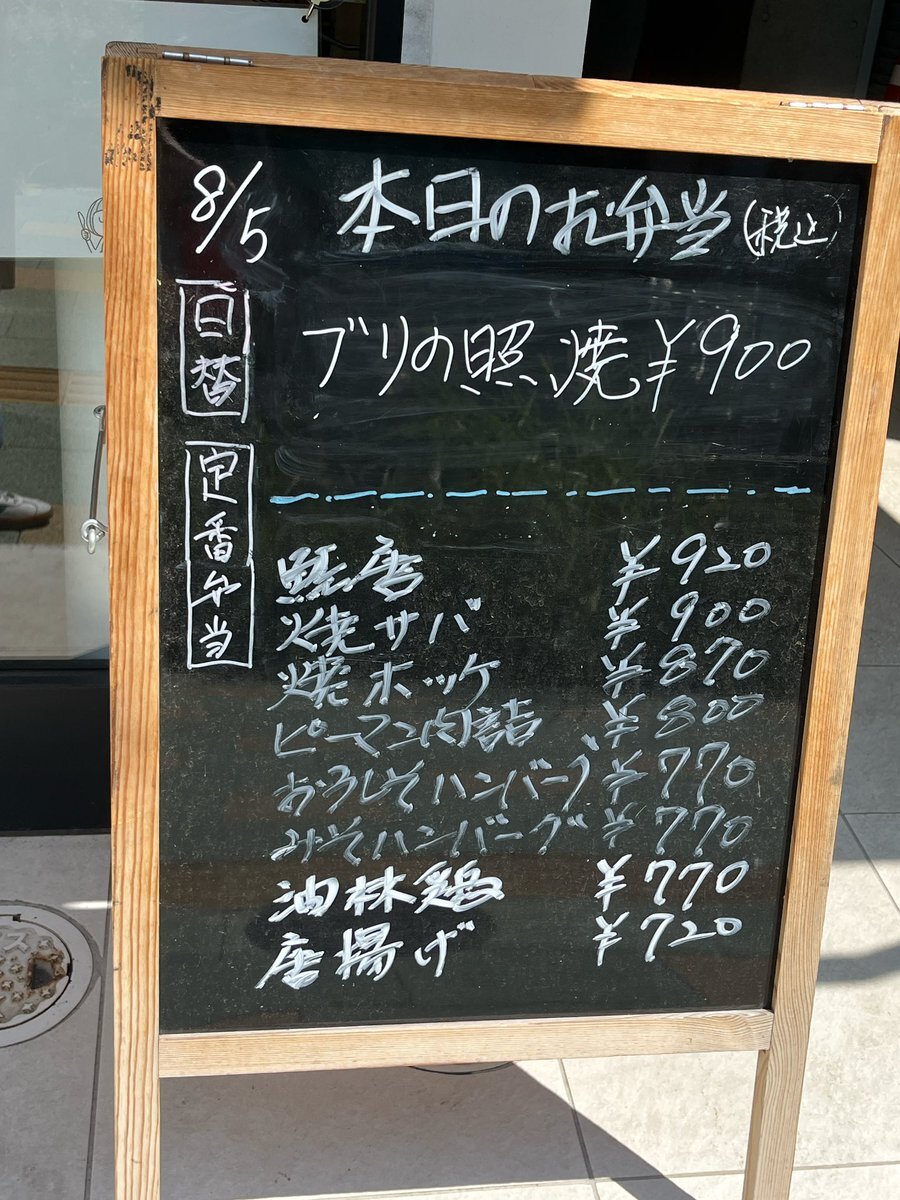 8/5 本日のお弁当(税込)
日替
ブリの照焼¥900
定番弁当
焼サバ ¥900
焼ホッケ ¥870
ピーマン肉詰 ¥800
おろしそハンバーグ ¥770
みそハンバーグ ¥770
油林鶏 ¥770
唐揚げ ¥720
¥920